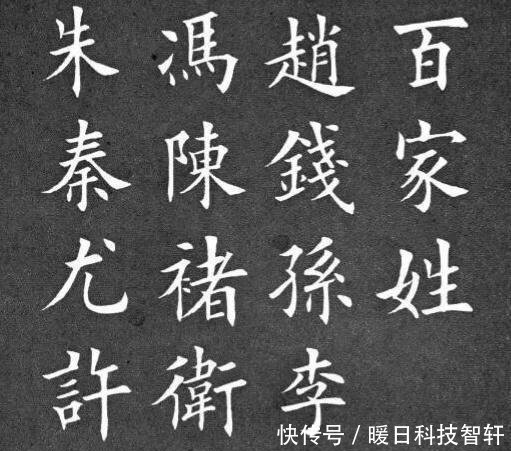 百家姓
趙錢孫李
馮陳褚衛
朱秦尤許
快传号/暖日科技智轩